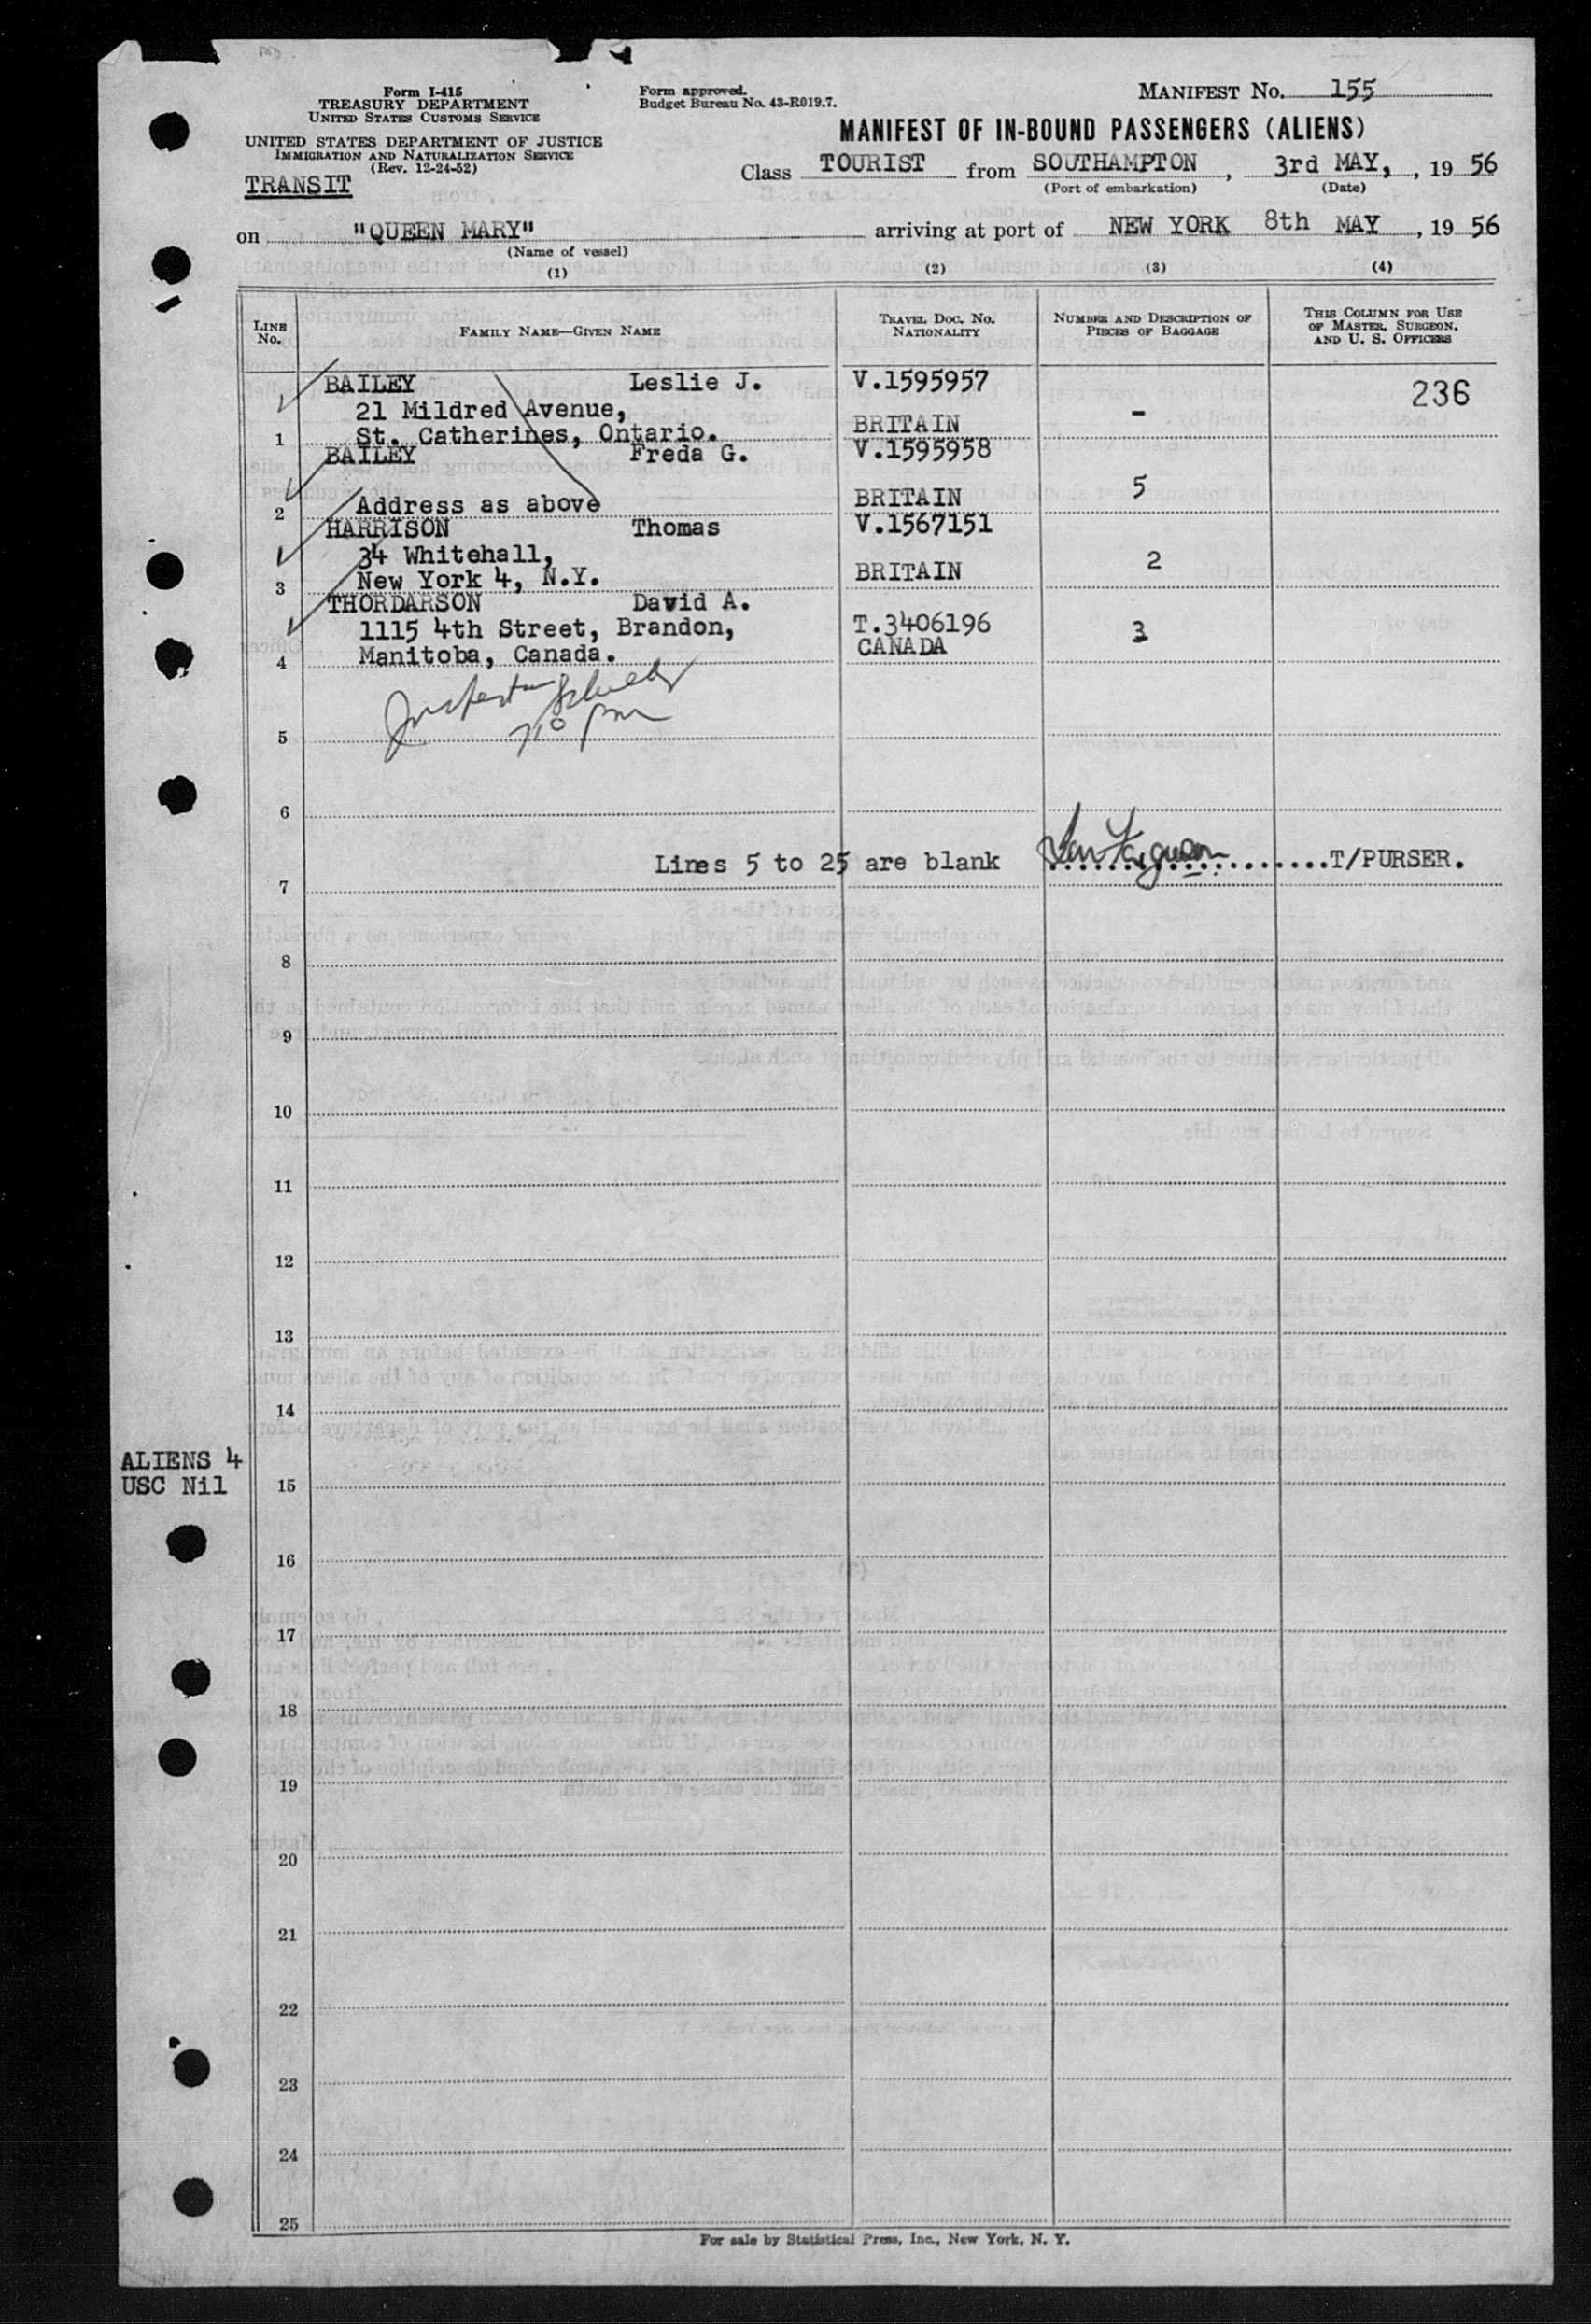 Form I-415
TREASURY DEPARTMENT
UNITED STATES CUSTOMS SERVICE
UNITED STATES DEPARTMENT OF JUSTICE
IMMIGRATION AND NATURALIZATION SERVICE
(Rev. 12-24-52)
TRANSIT
Form approved.
Budget Bureau No. 43-R019.7.
MANIFEST NO. 155
MANIFEST OF IN-BOUND PASSENGERS (ALIENS)
Class TOURIST from SOUTHAMPTON, 3rd MAY, , 19 56
(Port of embarkation) (Date)
on "QUEEN MARY" arriving at port of NEW YORK 8th MAY , 19 56
(Name of vessel)
(1) (2) (3) (4)
LINE NO. FAMILY NAME—GIVEN NAME TRAVEL DOC. NO. NATIONALITY NUMBER AND DESCRIPTION OF PIECES OF BAGGAGE THIS COLUMN FOR USE OF MASTER, SURGEON, AND U. S. OFFICERS
BAILEY Leslie J. V.1595957 236
21 Mildred Avenue, -
1 St. Catherines, Ontario. BRITAIN
BAILEY Freda G. V.1595958
2 Address as above BRITAIN 5
HARRISON Thomas V.1567151
34 Whitehall, 2
3 New York 4, N.Y. BRITAIN
THORDARSON David A.
1115 4th Street, Brandon, T.3406196 3
4 Manitoba, Canada. CANADA
5
6
Lines 5 to 25 are blank T/PURSER.
7
8
9
10
11
12
13
14
ALIENS 4
USC Nil
15
16
17
18
19
20
21
22
23
24
25
For sale by Statistical Press, Inc., New York, N. Y.